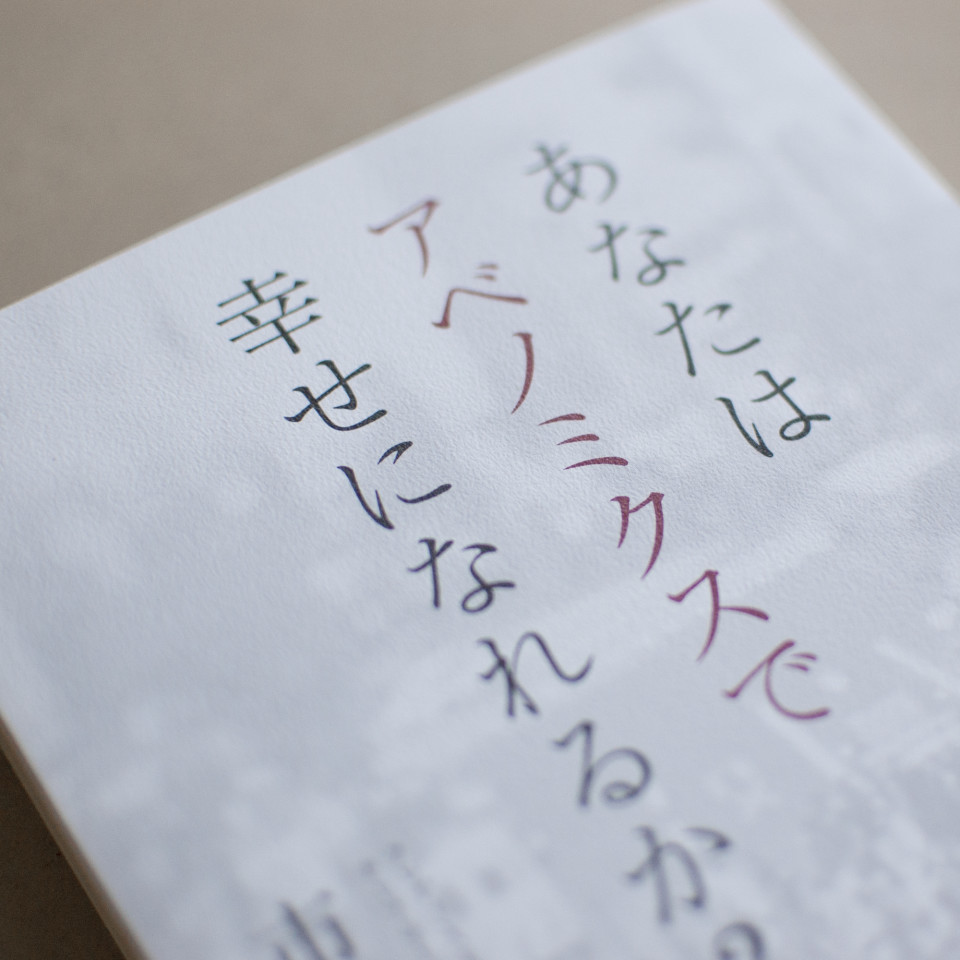 あなたは
アベノミクスで
幸せになれるか?